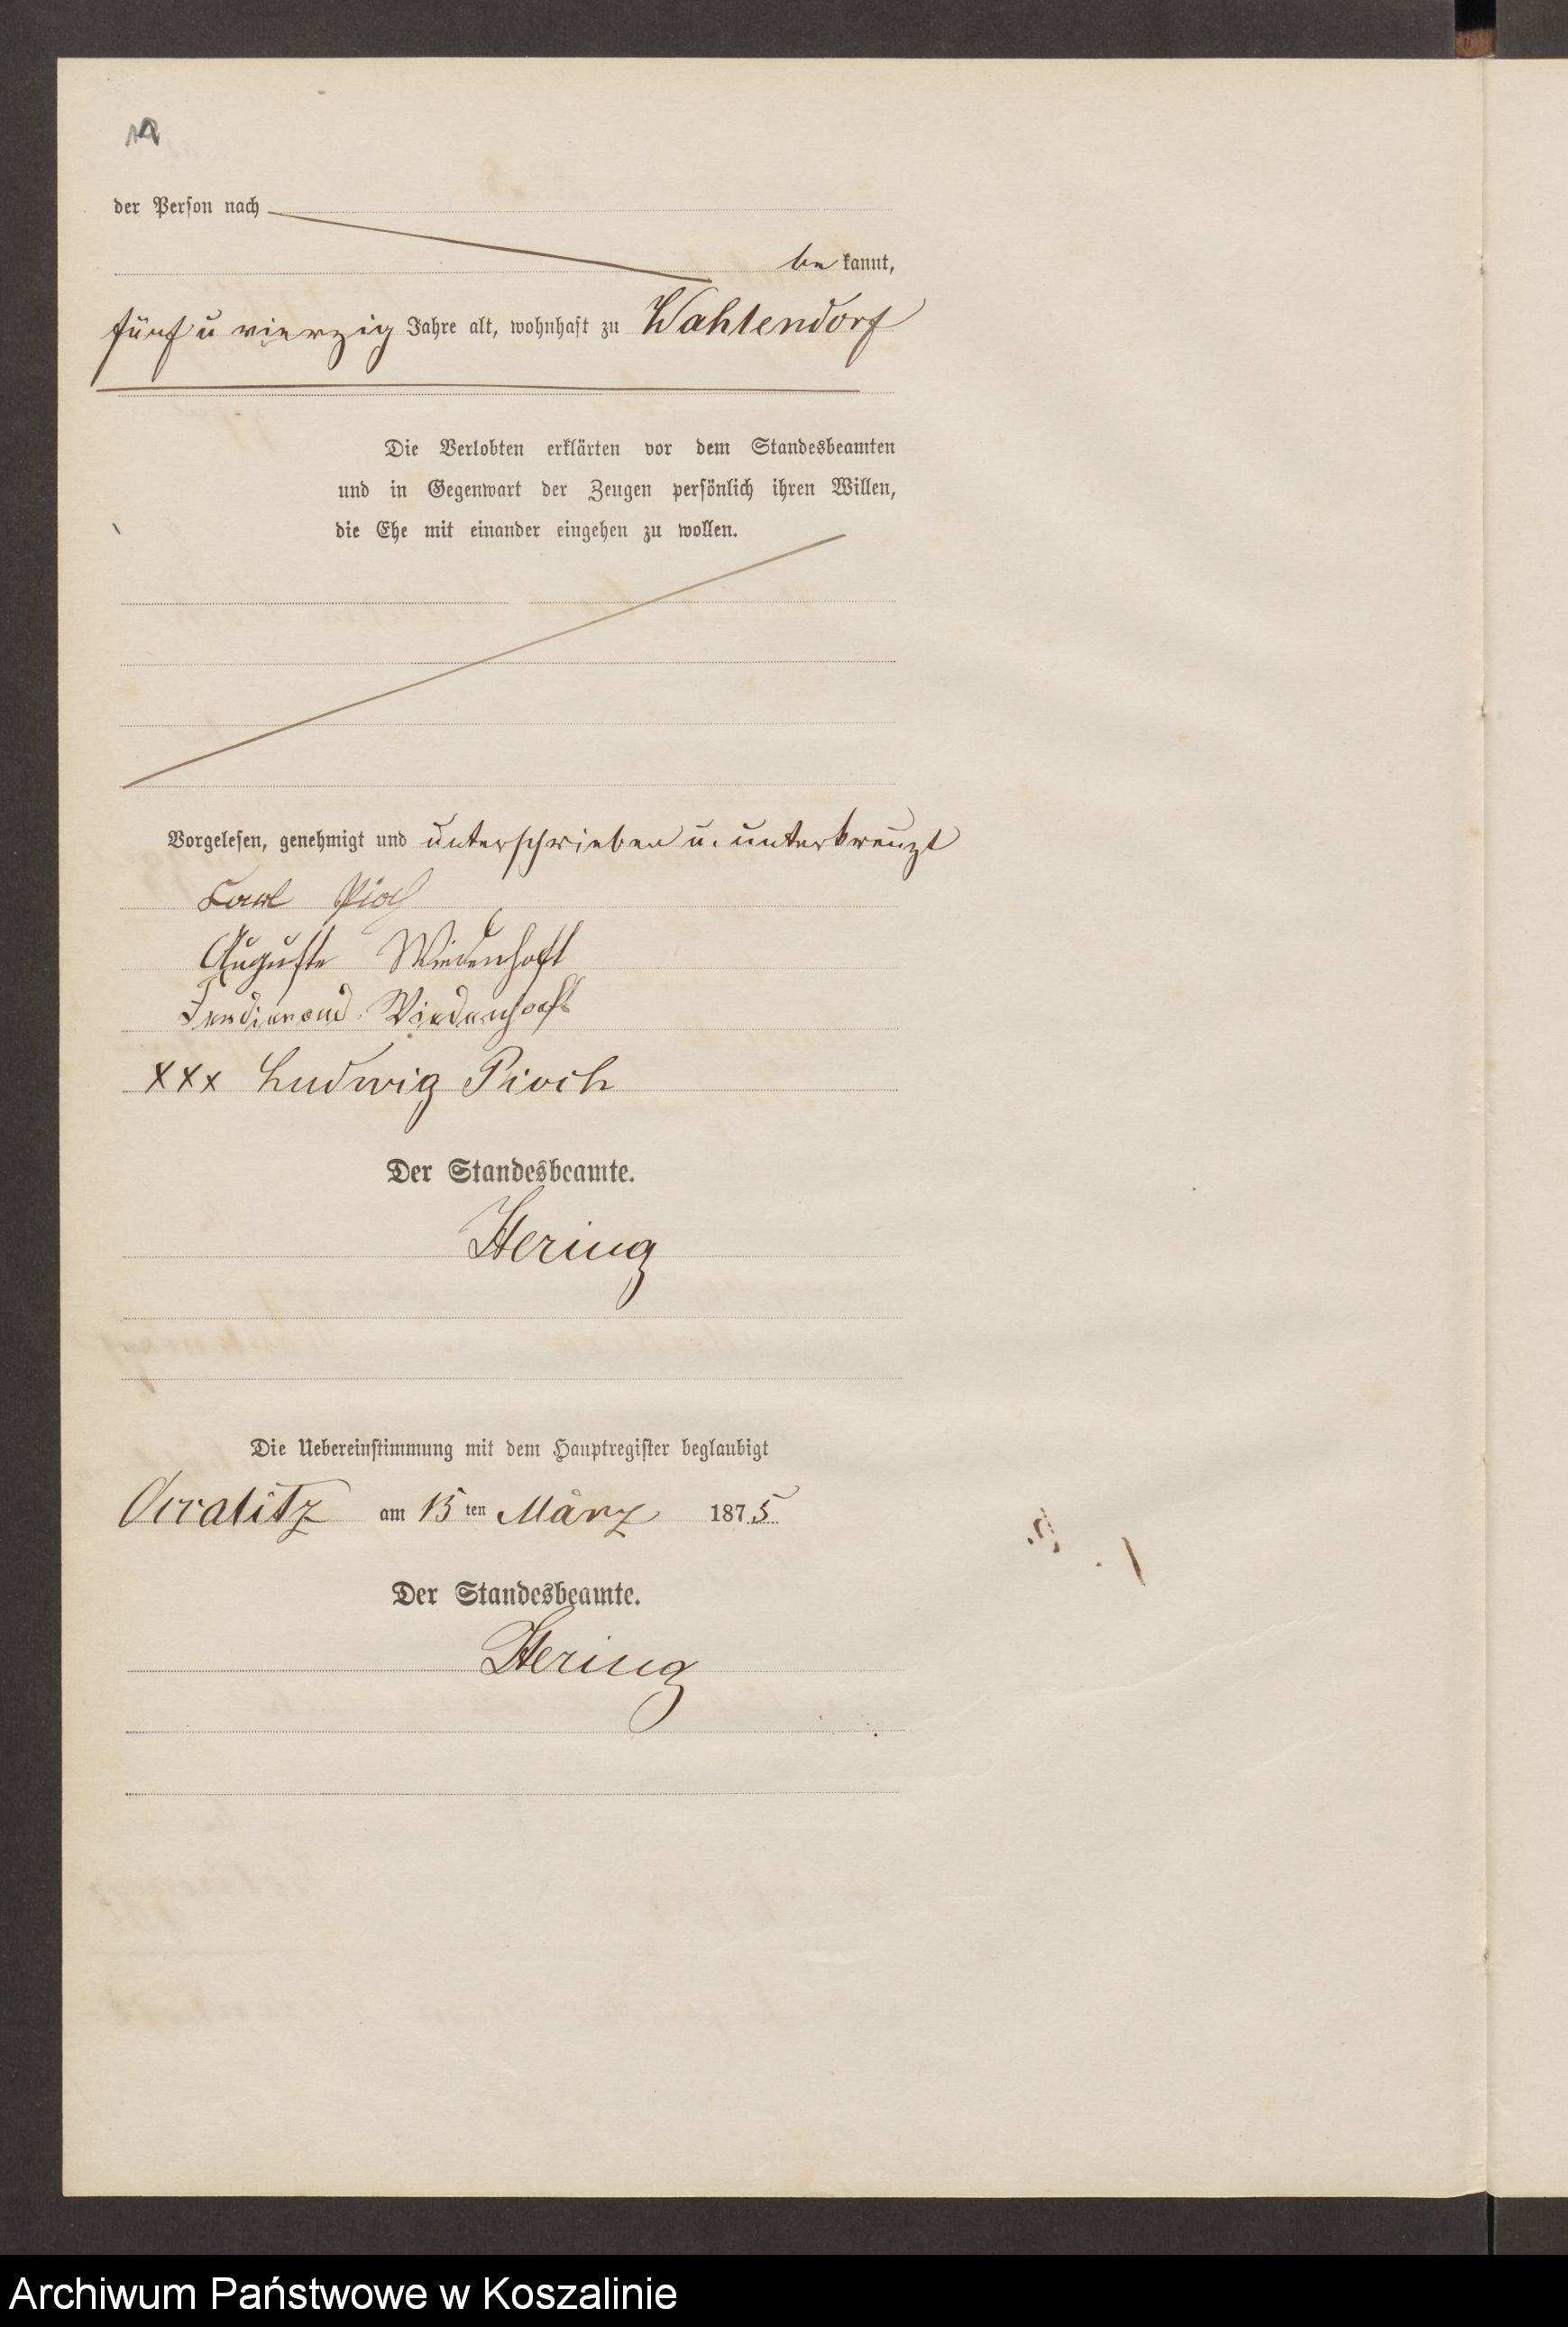 der Person nach
be kannt,
fünf u vierzig Jahre alt, wohnhaft zu Wahlendorf
Die Verlobten erklärten vor dem Standesbeamten
und in Gegenwart der Zeugen persönlich ihren Willen,
die Ehe mit einander eingehen zu wollen.
Vorgelesen, genehmigt und unterschrieben u. unterkreuzt
Carl Pioch
Auguste Wiedenhoft
Ferdienand Wiedenhoeft
XXX Ludwig Pioch
Der Standesbeamte.
Hering
Die Uebereinstimmung mit dem Hauptregister beglaubigt
am 15 ten März 1875
Der Standesbeamte.
Hering
Archiwum Państwowe w Koszalinie